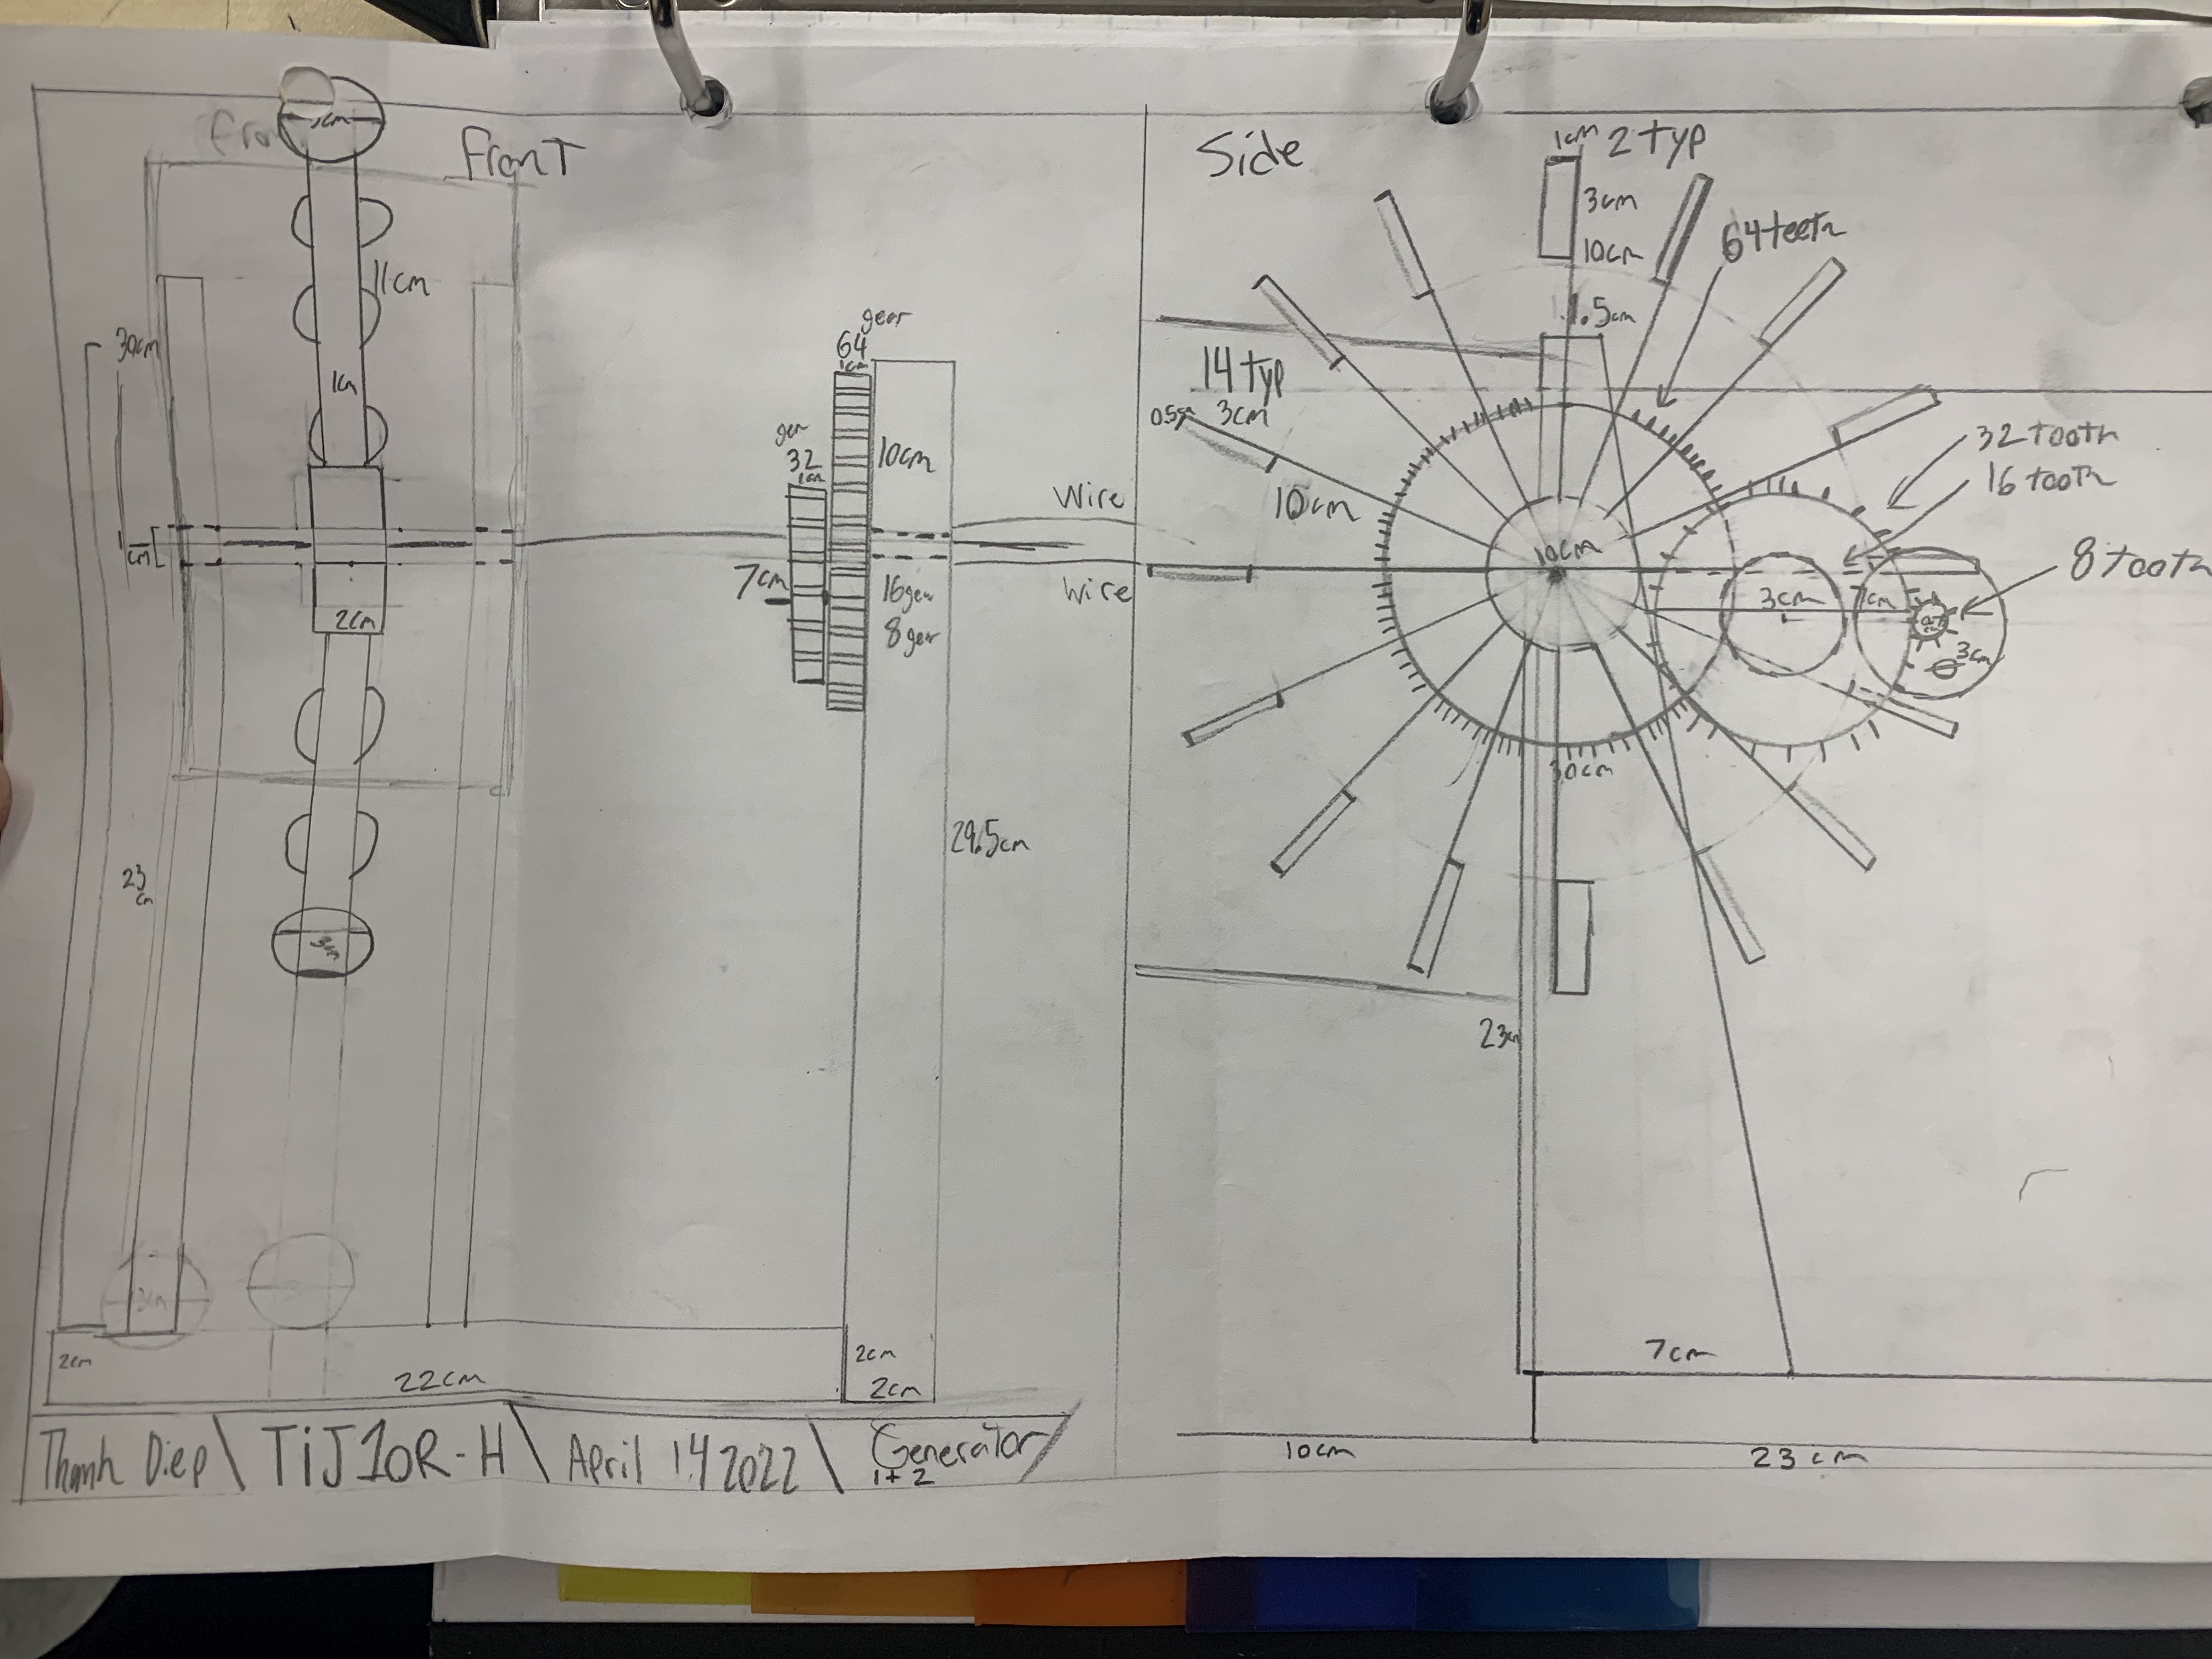 Front
11cm
30cm
1cm
1 cm
2cm
23 cm
3cm
2cm
22cm
gear
64
1cm
32
1cm
10cm
7cm
16gear
8gear
29.5cm
2cm
2cm
wire
wire
Side
1cm 2 typ
3cm
10cm
64 teeth
1.5cm
14 typ
0.5cm 3cm
10cm
32 tooth
16 tooth
10cm
8 tooth
3cm
7cm
3cm
30cm
23cm
7cm
10cm
23cm
Thanh Diep \ TiJ1oR-H \ April 14 2022 \ Generator
1+2